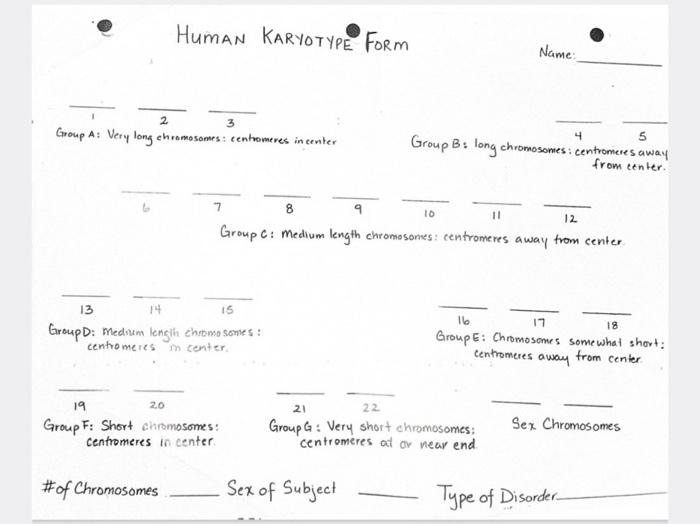 HUMAN KARYOTYPE FORM
Name:
1 2 3
Group A: Very long chromosomes: centromeres in center
4 5
Group B: long chromosomes: centromeres away
from center.
6 7 8 9 10 11 12
Group C: Medium length chromosomes: centromeres away from center.
13 14 15
Group D: Medium length chromosomes:
centromeres in center.
16 17 18
Group E: Chromosomes somewhat short:
centromeres away from center
19 20
Group F: Short chromosomes:
centromeres in center.
21 22
Group G: Very short chromosomes:
centromeres at or near end.
Sex Chromosomes
# of Chromosomes
Sex of Subject
Type of Disorder